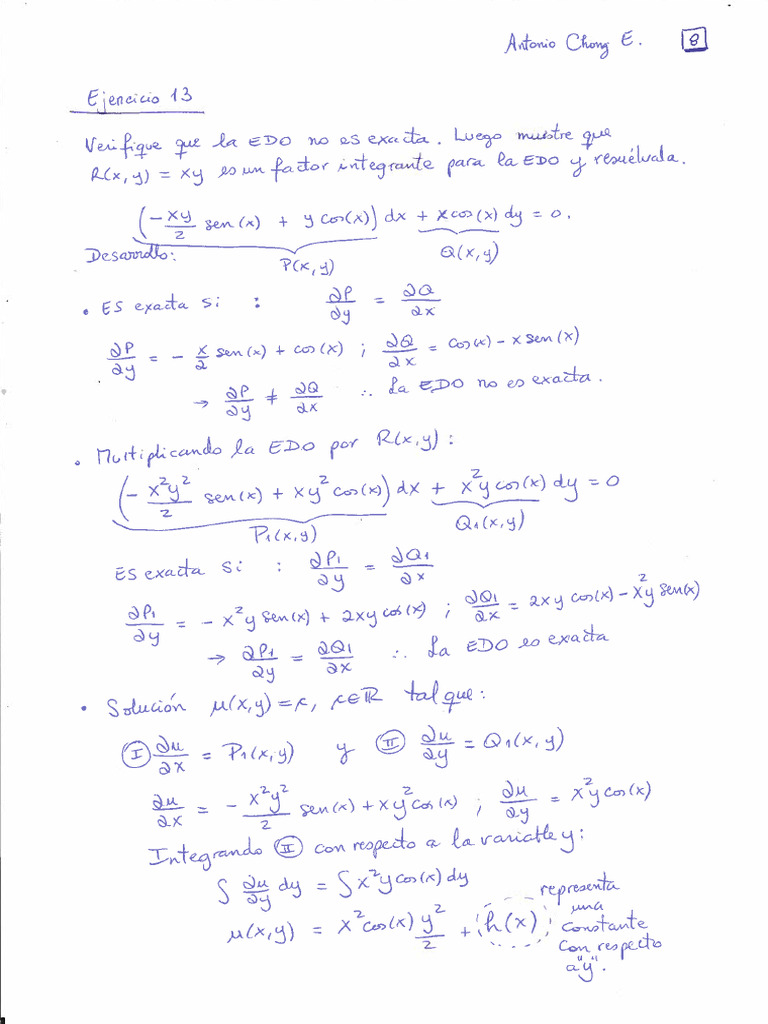 Antonio Chong E. 8
Ejercicio 13
Verifique que la EDO no es exacta. Luego muestre que
R(x,y) = xy es un factor integrante para la EDO y resuélvala.
(-xy/2 sen(x) + y cos(x)) dx + x cos(x) dy = 0.
P(x,y) Q(x,y)
Desarrollo:
• Es exacta si : ∂P/∂y = ∂Q/∂x
∂P/∂y = - x/2 sen(x) + cos(x) ; ∂Q/∂x = cos(x) - x sen(x)
→ ∂P/∂y ≠ ∂Q/∂x ∴ La EDO no es exacta.
• Multiplicando la EDO por R(x,y):
(- x²y²/2 sen(x) + xy² cos(x)) dx + x²y cos(x) dy = 0
P₁(x,y) Q₁(x,y)
Es exacta si : ∂P₁/∂y = ∂Q₁/∂x
∂P₁/∂y = - x²y sen(x) + 2xy cos(x) ; ∂Q₁/∂x = 2xy cos(x) - x²y sen(x)
→ ∂P₁/∂y = ∂Q₁/∂x ∴ La EDO es exacta
• Solución μ(x,y) = κ, κ∈ℝ tal que:
Ⓘ ∂μ/∂x = P₁(x,y) y Ⅱ ∂μ/∂y = Q₁(x,y)
∂μ/∂x = - x²y²/2 sen(x) + xy² cos(x) ; ∂μ/∂y = x²y cos(x)
Integrando Ⅱ con respecto a la variable y:
∫ ∂μ/∂y dy = ∫ x²y cos(x) dy
μ(x,y) = x² cos(x) y²/2 + h(x)
representa
una
constante
con respecto
a "y".